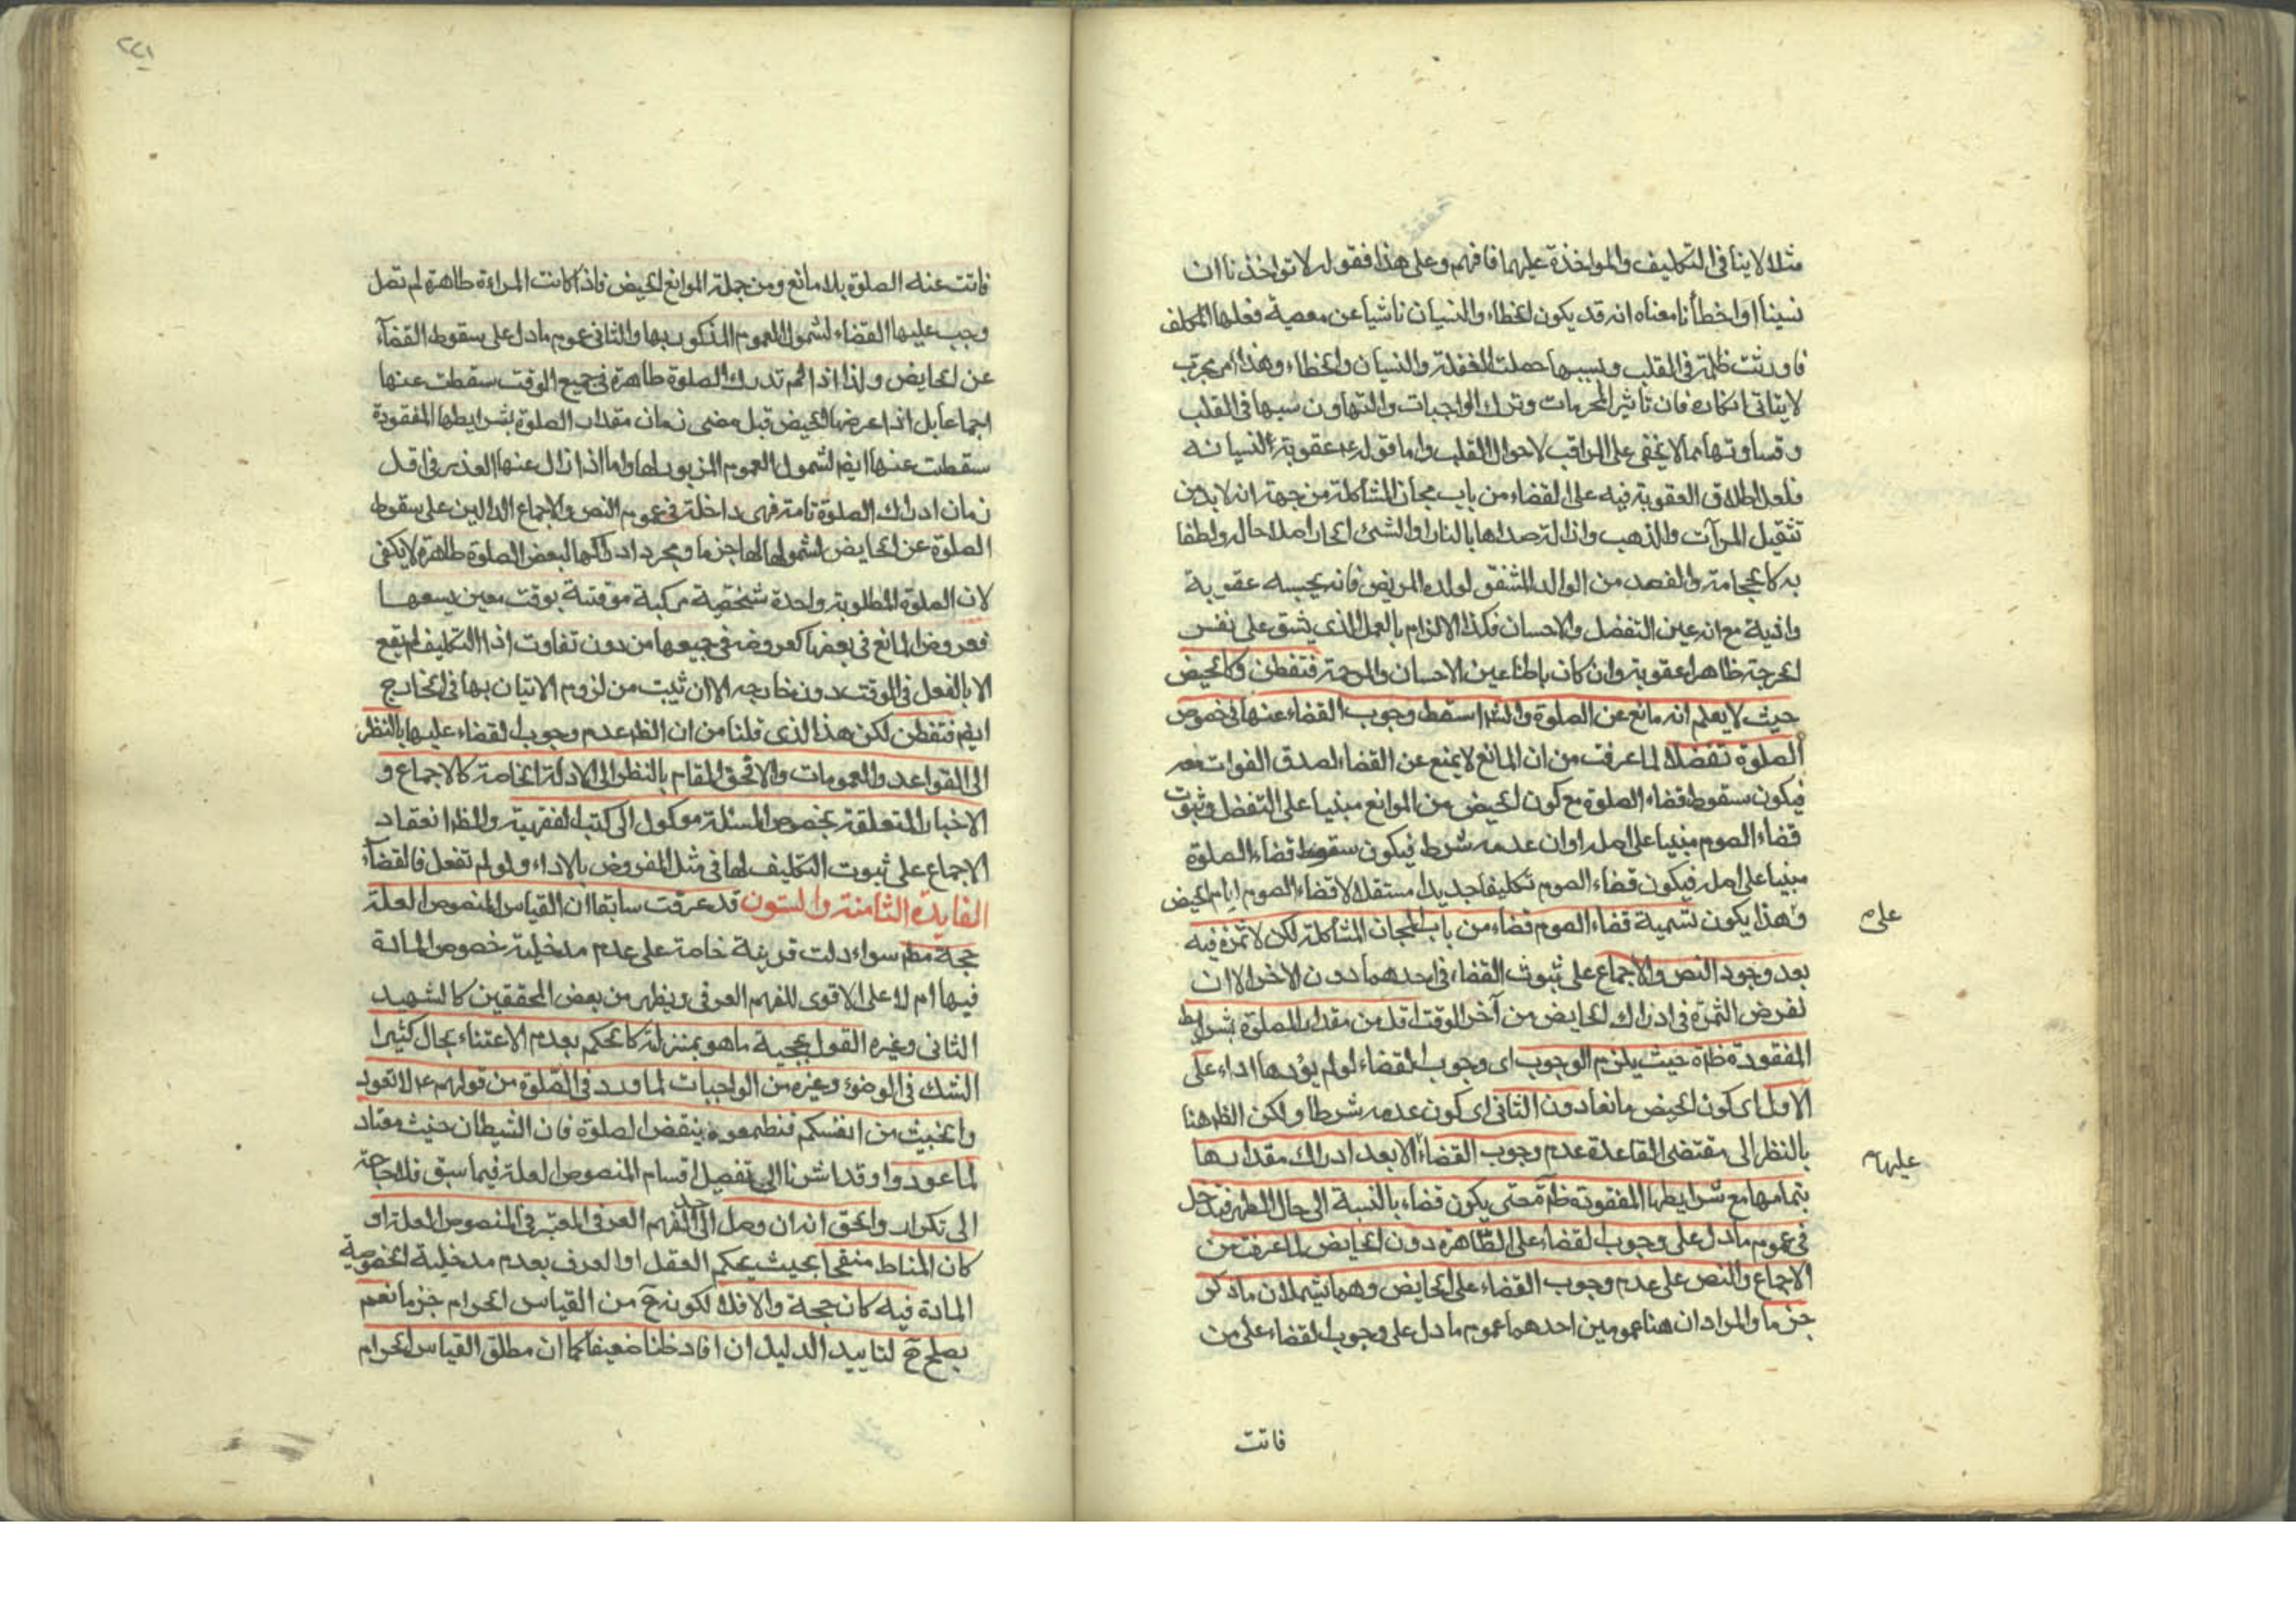 مثلا لا ينافى التكليف والمواخذة عليهما فافهم وعلى هذا فقوله لا تواخذنا ان
نسينا او اخطأنا معناه انه قد يكون الخطاء والنسيان ناشيا عن معصية فعلها المكلف
فاورثت ظلمة فى القلب وبسببها حصلت الغفلة والنسيان والخطاء وهذا امر مجرب
لا يتاتى انكاره فان تاثير المحرمات وترك الواجبات والتهاون سببها فى القلب
وقساوتها مما لا يخفى على المراقب لاحوال القلب واما قوله عقوبة لنسيانه
فلعل اطلاق العقوبة فيه على القضاء من باب مجاز المشاكلة من جهة انه لا بد من
تثقيل المرآت والذهب واذا لة صداها بالنار او الشئ الحار اصلاحا له ولطفا
به كالحجامة والفصد من الوالد المشفق لولده المريض فانه يحسبه عقوبة
واذية مع انه عين التفضل والاحسان فكذا الالزام بالعمل الذى يشق على نفس
الحرجة ظاهرا عقوبة وان كان باطنا عين الاحسان والرحمة فتفطن وكالحيض
حيث لا يعلم انه مانع عن الصلوة والشرا سقط وجوب القضاء عنها فى خصوص
الصلوة تفضلا لما عرفت من ان المانع لا يمنع عن القضاء لصدق الفوات معه
فيكون سقوط قضاء الصلوة مع كون الحيض من الموانع مبنيا على التفضل وثبوت
قضاء الصوم مبنيا على اصله او ان عدمه شرط فيكون سقوط قضاء الصلوة
مبنيا على اصله فيكون قضاء الصوم تكليفا جديدا مستقلا لا قضاء الصوم ايام الحيض
وهذا يكون تسمية قضاء الصوم قضاء من باب المجاز المشاكلة لكن لا ثمرة فيه
على م
بعد وجود النص والاجماع على ثبوت القضاء فى احدهما دون الاخر الا ان
نفرض الثمرة فى ادراك الحايض من آخر الوقت اقل من مقدار الصلوة بشرايط
المفقودة ظاهرة حيث يلزم الوجوب اى وجوب القضاء لو لم يؤدها اداء على
الاول اى كون الحيض مانعا دون الثانى اى كون عدمه شرطا ولكن الظ هنا
بالنظر الى مقتضى القاعدة عدم وجوب القضاء الا بعد ادراك مقدارها
عليها م
بتمامها مع شرايطها المفقودة حتى يكون قضاء بالنسبة الى حال الطهر فيدخل
فى عموم ما دل على وجوب القضاء على الطاهرة دون الحايض لما عرفت من
الاجماع والنص على عدم وجوب القضاء على الحايض وهما يشملان ما ذكر
جزما والمراد ان هنا عمومين احدهما عموم ما دل على وجوب القضاء على من
فاتت
٢٢١
فاتت عنه الصلوة بلا مانع ومن جملة الموانع الحيض فاذا كانت المراءة طاهرة لم تصل
وجب عليها القضاء لشمول العموم المذكور بها والثانى عموم ما دل على سقوط القضآء
عن الحايض ولذا اذا لم تدرك الصلوة طاهرة فى جميع الوقت سقطت عنها
اجماعا بل اذا عرضها الحيض قبل مضى زمان مقدار الصلوة بشرايطها المفقودة
سقطت عنها ايض لشمول العموم المزبور لها واما اذا زال عنها العذر فى اقل
زمان ادراك الصلوة تامة فهى داخلة فى عموم النص والاجماع الدالين على سقوط
الصلوة عن الحايض لشمولها لها جزما ومجرد ادراكها لبعض الصلوة طاهرة لا يكفى
لان الصلوة المطلوبة واحدة شخصية مركبة موقتة بوقت معين يسعها
فعروض المانع فى بعضها كعروضه فى جميعها من دون تفاوت اذا التكليف لم تقع
الا بالفعل فى الوقت دون خارجه الا ان ثبت من لزوم الاتيان بها فى الخارج
ايض فتفطن لكن هذا الذى قلنا من ان الظ عدم وجوب القضاء عليها بالنظر
الى القواعد والعمومات والا فحق المقام بالنظر الى الادلة الخاصة كالاجماع و
الاخبار المتعلقة بخصوص المسئلة موكول الى كتب الفقهية والظ انعقاد
الاجماع على ثبوت التكليف لها فى مثل المفروض بالاداء ولو لم تفعل فالقضآء
الفايدة الثامنة والستون قد عرفت سابقا ان القياس المنصوص العلة
حجة مطم سواء دلت قرينة خاصة على عدم مدخلية خصوص المادة
فيها ام لا على الاقوى للفهم العرفى ويظهر من بعض المحققين كالشهيد
الثانى وغيره القول بحجية ما هو بمنزلة كالحكم بعدم الاعتناء بحال كثيرا
الشك فى الوضوء وغيره من الواجبات لما ورد فى الصلوة من قولهم ع لا تعود
وا الخبيث من انفسكم فتطمعوه بنقض الصلوة فان الشيطان خبيث معتاد
لما عود واوقد اشرنا الى تفصيل اقسام المنصوص العلة فيما سبق فلا حاجة
الى تكرار والحق انه ان وصل الى حد الفهم العرفى المعتبر فى المنصوص العلة او
كان المناط منقحا بحيث يحكم العقل او العرف بعدم مدخلية الخصوصية
المادة فيه كان حجة والا فلا لكونه ح من القياس الحرام جزما نعم
يصلح ح لتاييد الدليل ان افاد ظنا ضعيفا كما ان مطلق القياس الحرام